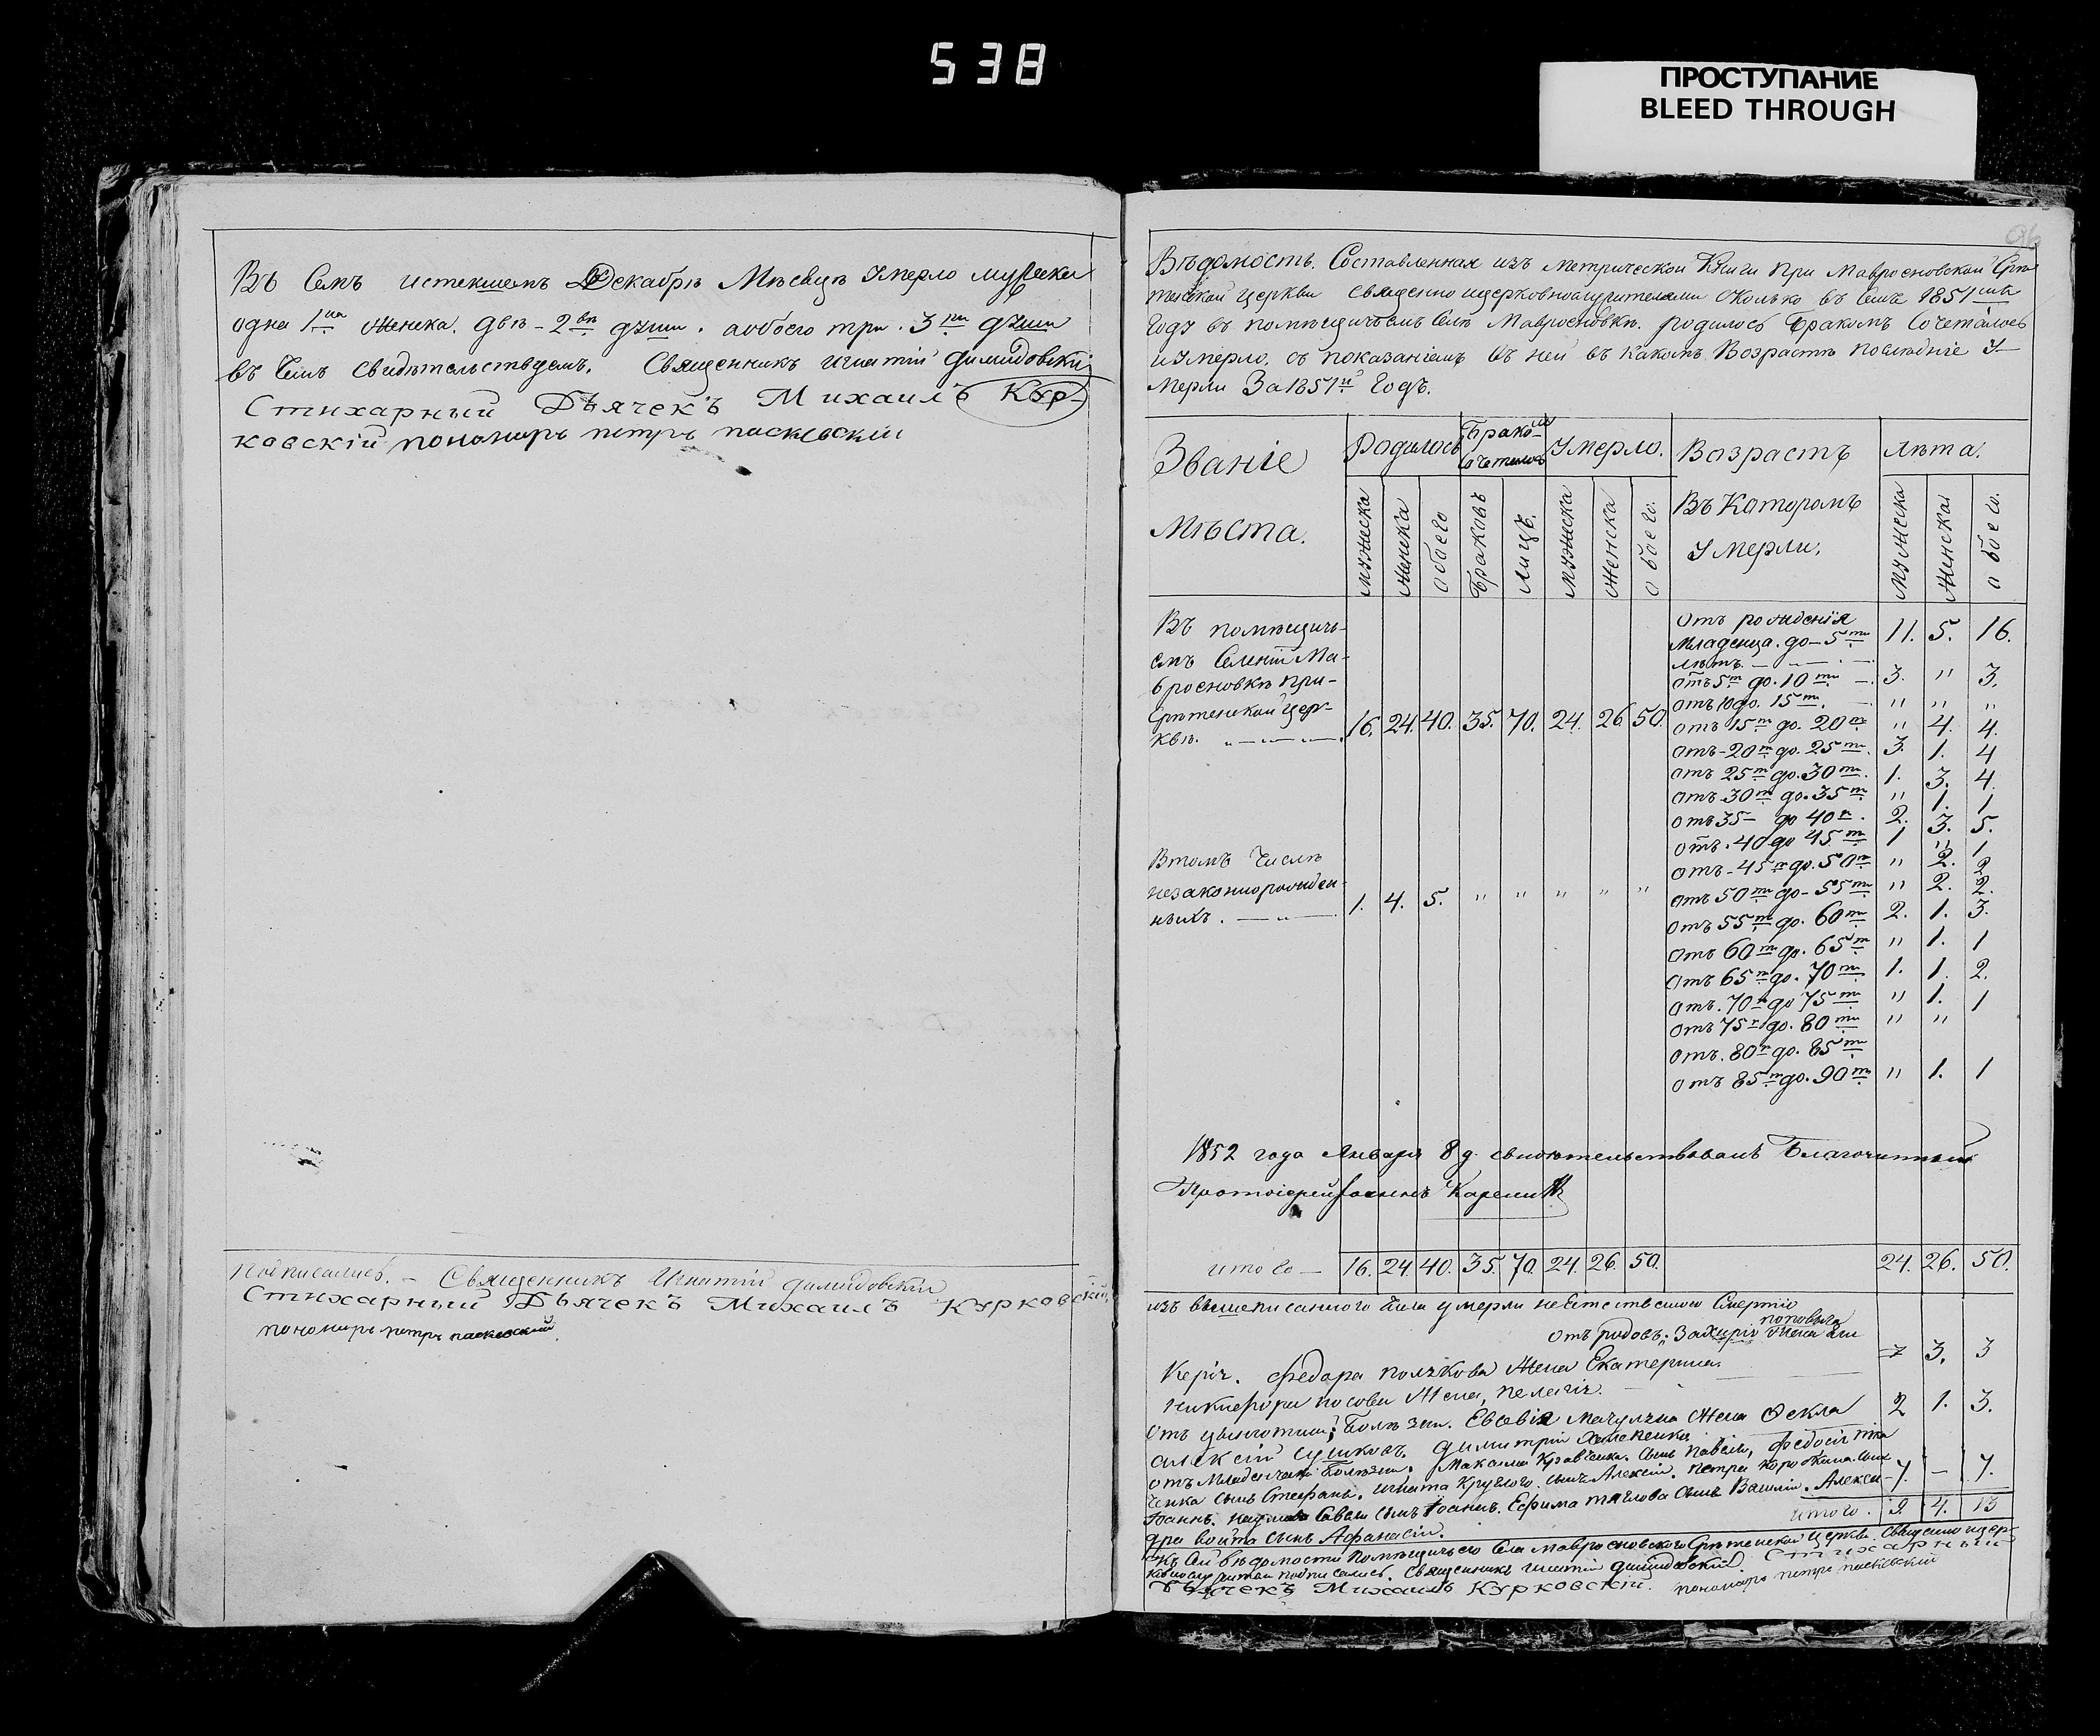 538
ПРОСТУПАНИЕ
BLEED THROUGH
Въ Семъ истекшемъ Декабрѣ Мѣсецѣ Умерло мужеска
одна 1на женска. двѣ - 2вѣ дѹши. аобоего три. 3ри дѹши
въ Чемъ свидѣтельствуемъ. Священникъ Игнатій Димидовскій
Стихарный Дьячекъ Михаилъ Кур-
ковскій пономаръ петръ паскевскій
Подписались. - Священникъ Игнатій Димидовскій
Стихарный Дьячекъ Михаилъ Курковскій
пономаръ петръ паскевскій
96
Вѣдомость. Составленная изъ метрической Книги при Мавросновской Срѣ-
тенской церкви священно ицерковнослужителями Сколько въ Семъ 1851мъ
Году въ помѣщичьемъ Селѣ Мавросновкѣ. родилось Бракомъ Сочеталось
и Умерло. съ показаніемъ въ ней въ какомъ Возрастѣ послѣдніе У-
мерли За 1851й Годъ.
Званіе Мѣста.
Родилось Бракомъ Сочеталось Умерло. Возрастъ Въ Которомъ Умерли. лѣта.
мужеска женска обоего Браковъ Лицъ. мужеска женска обоего. мужеска женска обоего.
Въ помѣщичь-
емъ Селеніи Ма-
вросновкѣ при-
Срѣтенской цер-
квѣ. 16. 24. 40. 35. 70. 24. 26 50.
Втомъ Числѣ
незаконнорожден-
ныхъ. 1. 4. 5. " " " " "
Отъ рожденія
Младенца. до - 5ти 11. 5. 16.
лѣтъ.
отъ 5ти до. 10ти 3. " 3.
отъ 10 до. 15ти " " "
отъ 15ти до. 20ти " 4. 4.
отъ - 20ти до. 25ти 3. 1. 4
отъ 25ти до. 30ти. 1. 3. 4
отъ 30ти до. 35ти " 1. 1
отъ 35 - до 40к. 2. 3. 5.
отъ. 40 до 45ти 1 " 1
отъ - 45ти до. 50ти " 2. 2
отъ 50ти до - 55ти " 2. 2.
отъ 55ти до. 60ти 2. 1. 3.
отъ 60ти до. 65ти " 1. 1
отъ 65ти до. 70ти 1. 1. 2.
отъ. 70ти до 75ти " 1. 1
отъ 75ти до. 80ти " "
отъ. 80ти до. 85ти
отъ 85ти до. 90ти " 1. 1
1852 года Января 8 д. свидѣтельствовалъ Благочинный
Протоіерей Іоаннъ
Итого - 16. 24. 40. 35. 70. 24. 26. 50. 24. 26. 50.
изъ вышеписанного Числа умерли неестественного Смертію
отъ родовъ; Захарія попова жена
Федора полякова Жена Екатерина. 3. 3
никифора носова Жена, пелагія.
отъ Болѣзни. Евсевія Жена Фекла 2 1. 3.
алексій сушковъ. Димитрій
отъ Младенческой Болѣзни. Максима Кравченка. Сынъ Павелъ,
Ченка Сынъ Стефанъ. Игната Круглого. Сынъ Алексій. Петра Сынъ
Іоаннъ. Савы Сынъ Іоаннъ. Ефима Сынъ Василій. Алексан- 7. - 7.
дра войта Сынъ Афанасій. Итого. 9. 4. 13
Къ Сей вѣдомости Помѣщичьего Села Мавросновского Срѣтенской Церкви. Священно ицер-
ковнослужители подписались. Священникъ Игнатій Димидовскій. Стихарный
Дьячекъ Михаилъ Курковскій. пономаръ петръ паскевскій